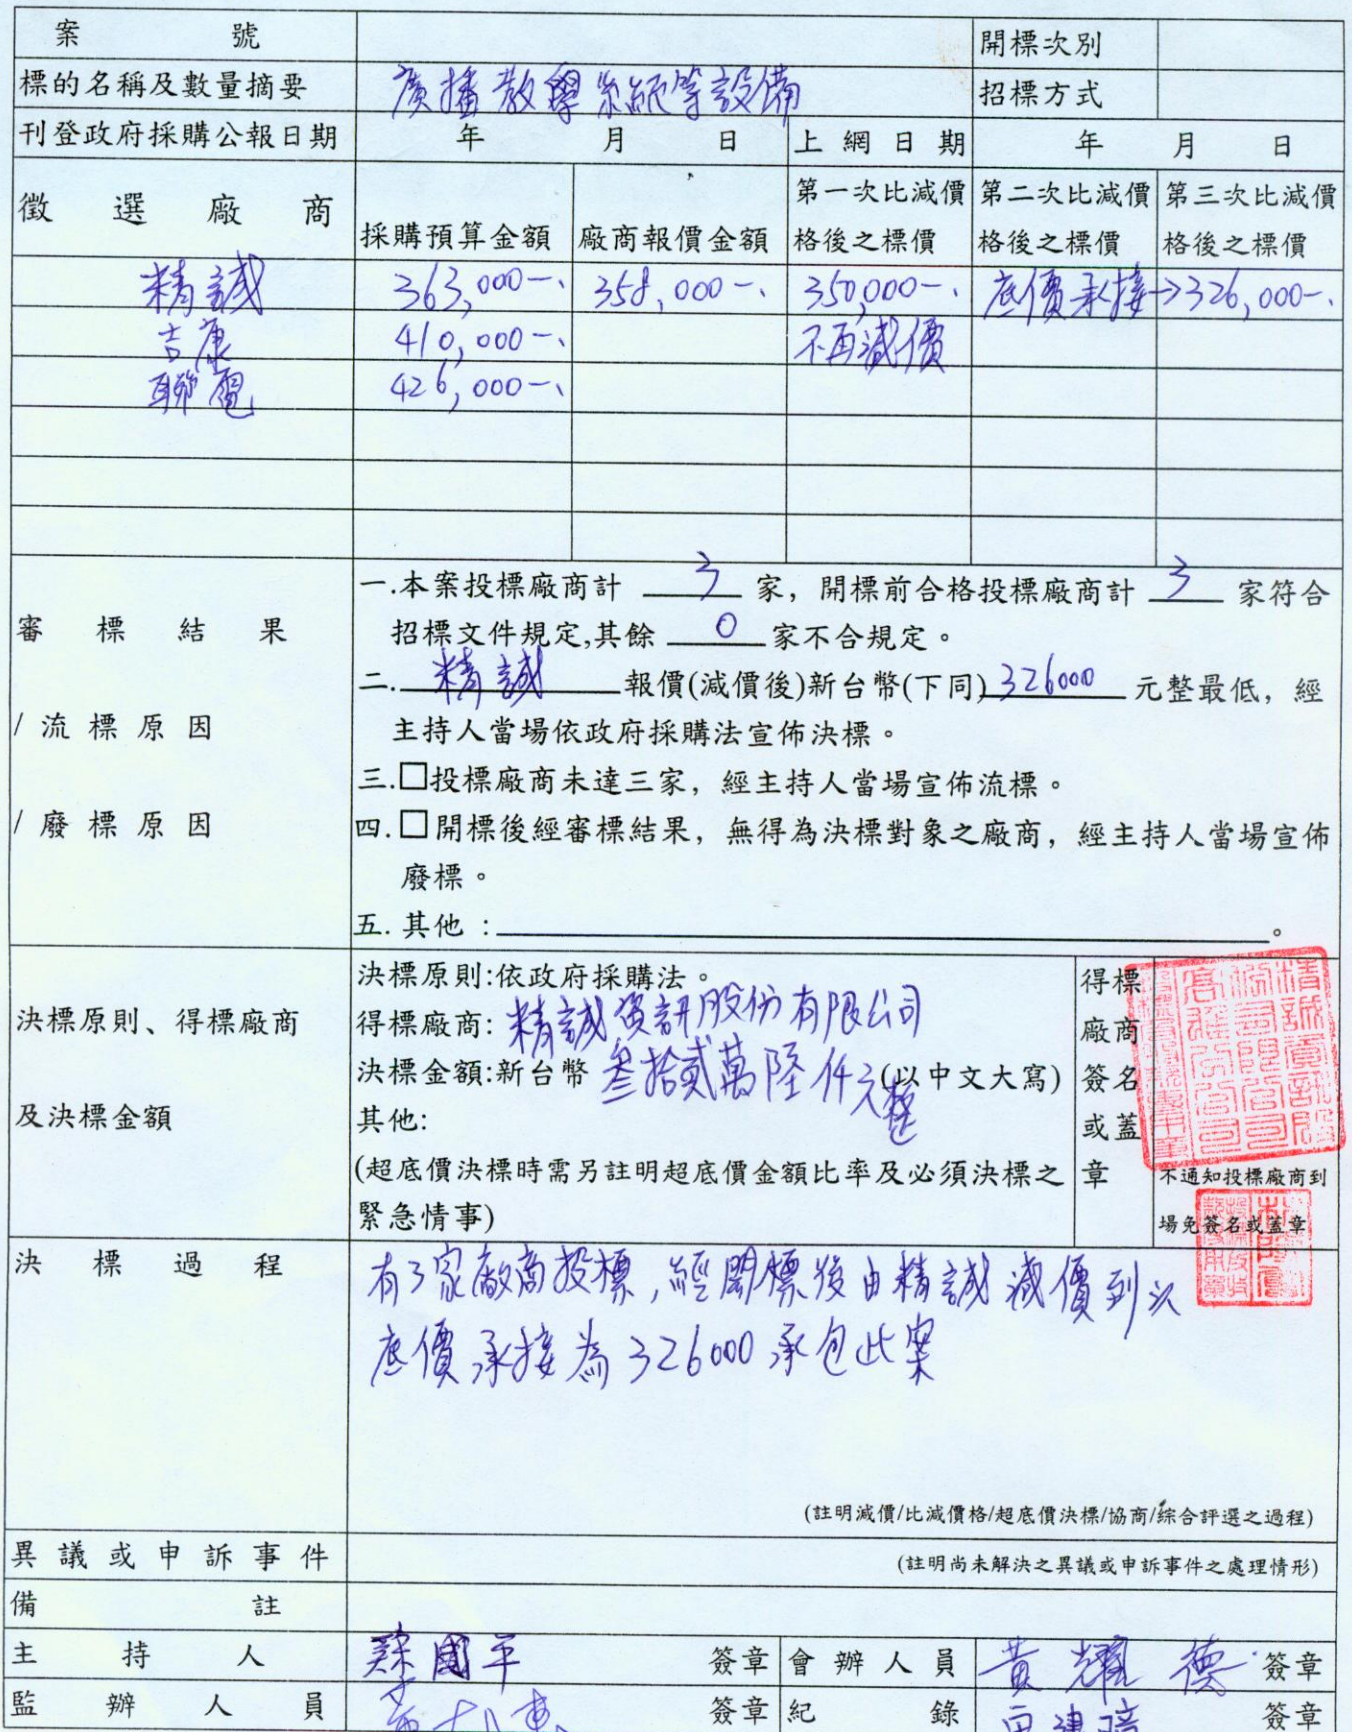 案 號 開標次別
標的名稱及數量摘要 廣播教學系統等設備 招標方式
刊登政府採購公報日期 年 月 日 上網日期 年 月 日
徵選廠商 採購預算金額 廠商報價金額 第一次比減價格後之標價 第二次比減價格後之標價 第三次比減價格後之標價
精誠 363,000-. 358,000-. 350,000-. 底價承接→326,000-.
吉康 410,000-. 不再減價
聯電 426,000-.
審標結果
/流標原因
/廢標原因
一.本案投標廠商計 3 家，開標前合格投標廠商計 3 家符合
招標文件規定,其餘 0 家不合規定。
二.精誠 報價(減價後)新台幣(下同)326000 元整最低，經
主持人當場依政府採購法宣佈決標。
三.□投標廠商未達三家，經主持人當場宣佈流標。
四.□開標後經審標結果，無得為決標對象之廠商，經主持人當場宣佈
廢標。
五.其他：。
決標原則、得標廠商
及決標金額
決標原則:依政府採購法。
得標廠商:精誠資訊股份有限公司
決標金額:新台幣 叁拾貳萬陸仟元整(以中文大寫)
其他:
(超底價決標時需另註明超底價金額比率及必須決標之
緊急情事)
得標
廠商
簽名
或蓋
章
不通知投標廠商到
場免簽名或蓋章
決標過程
有3家廠商投標,經開標後由精誠減價到以
底價承接為326000承包此案
(註明減價/比減價格/超底價決標/協商/綜合評選之過程)
異議或申訴事件 (註明尚未解決之異議或申訴事件之處理情形)
備註
主持人 國平 簽章 會辦人員 黃耀德 簽章
監辦人員 簽章 紀錄 簽章